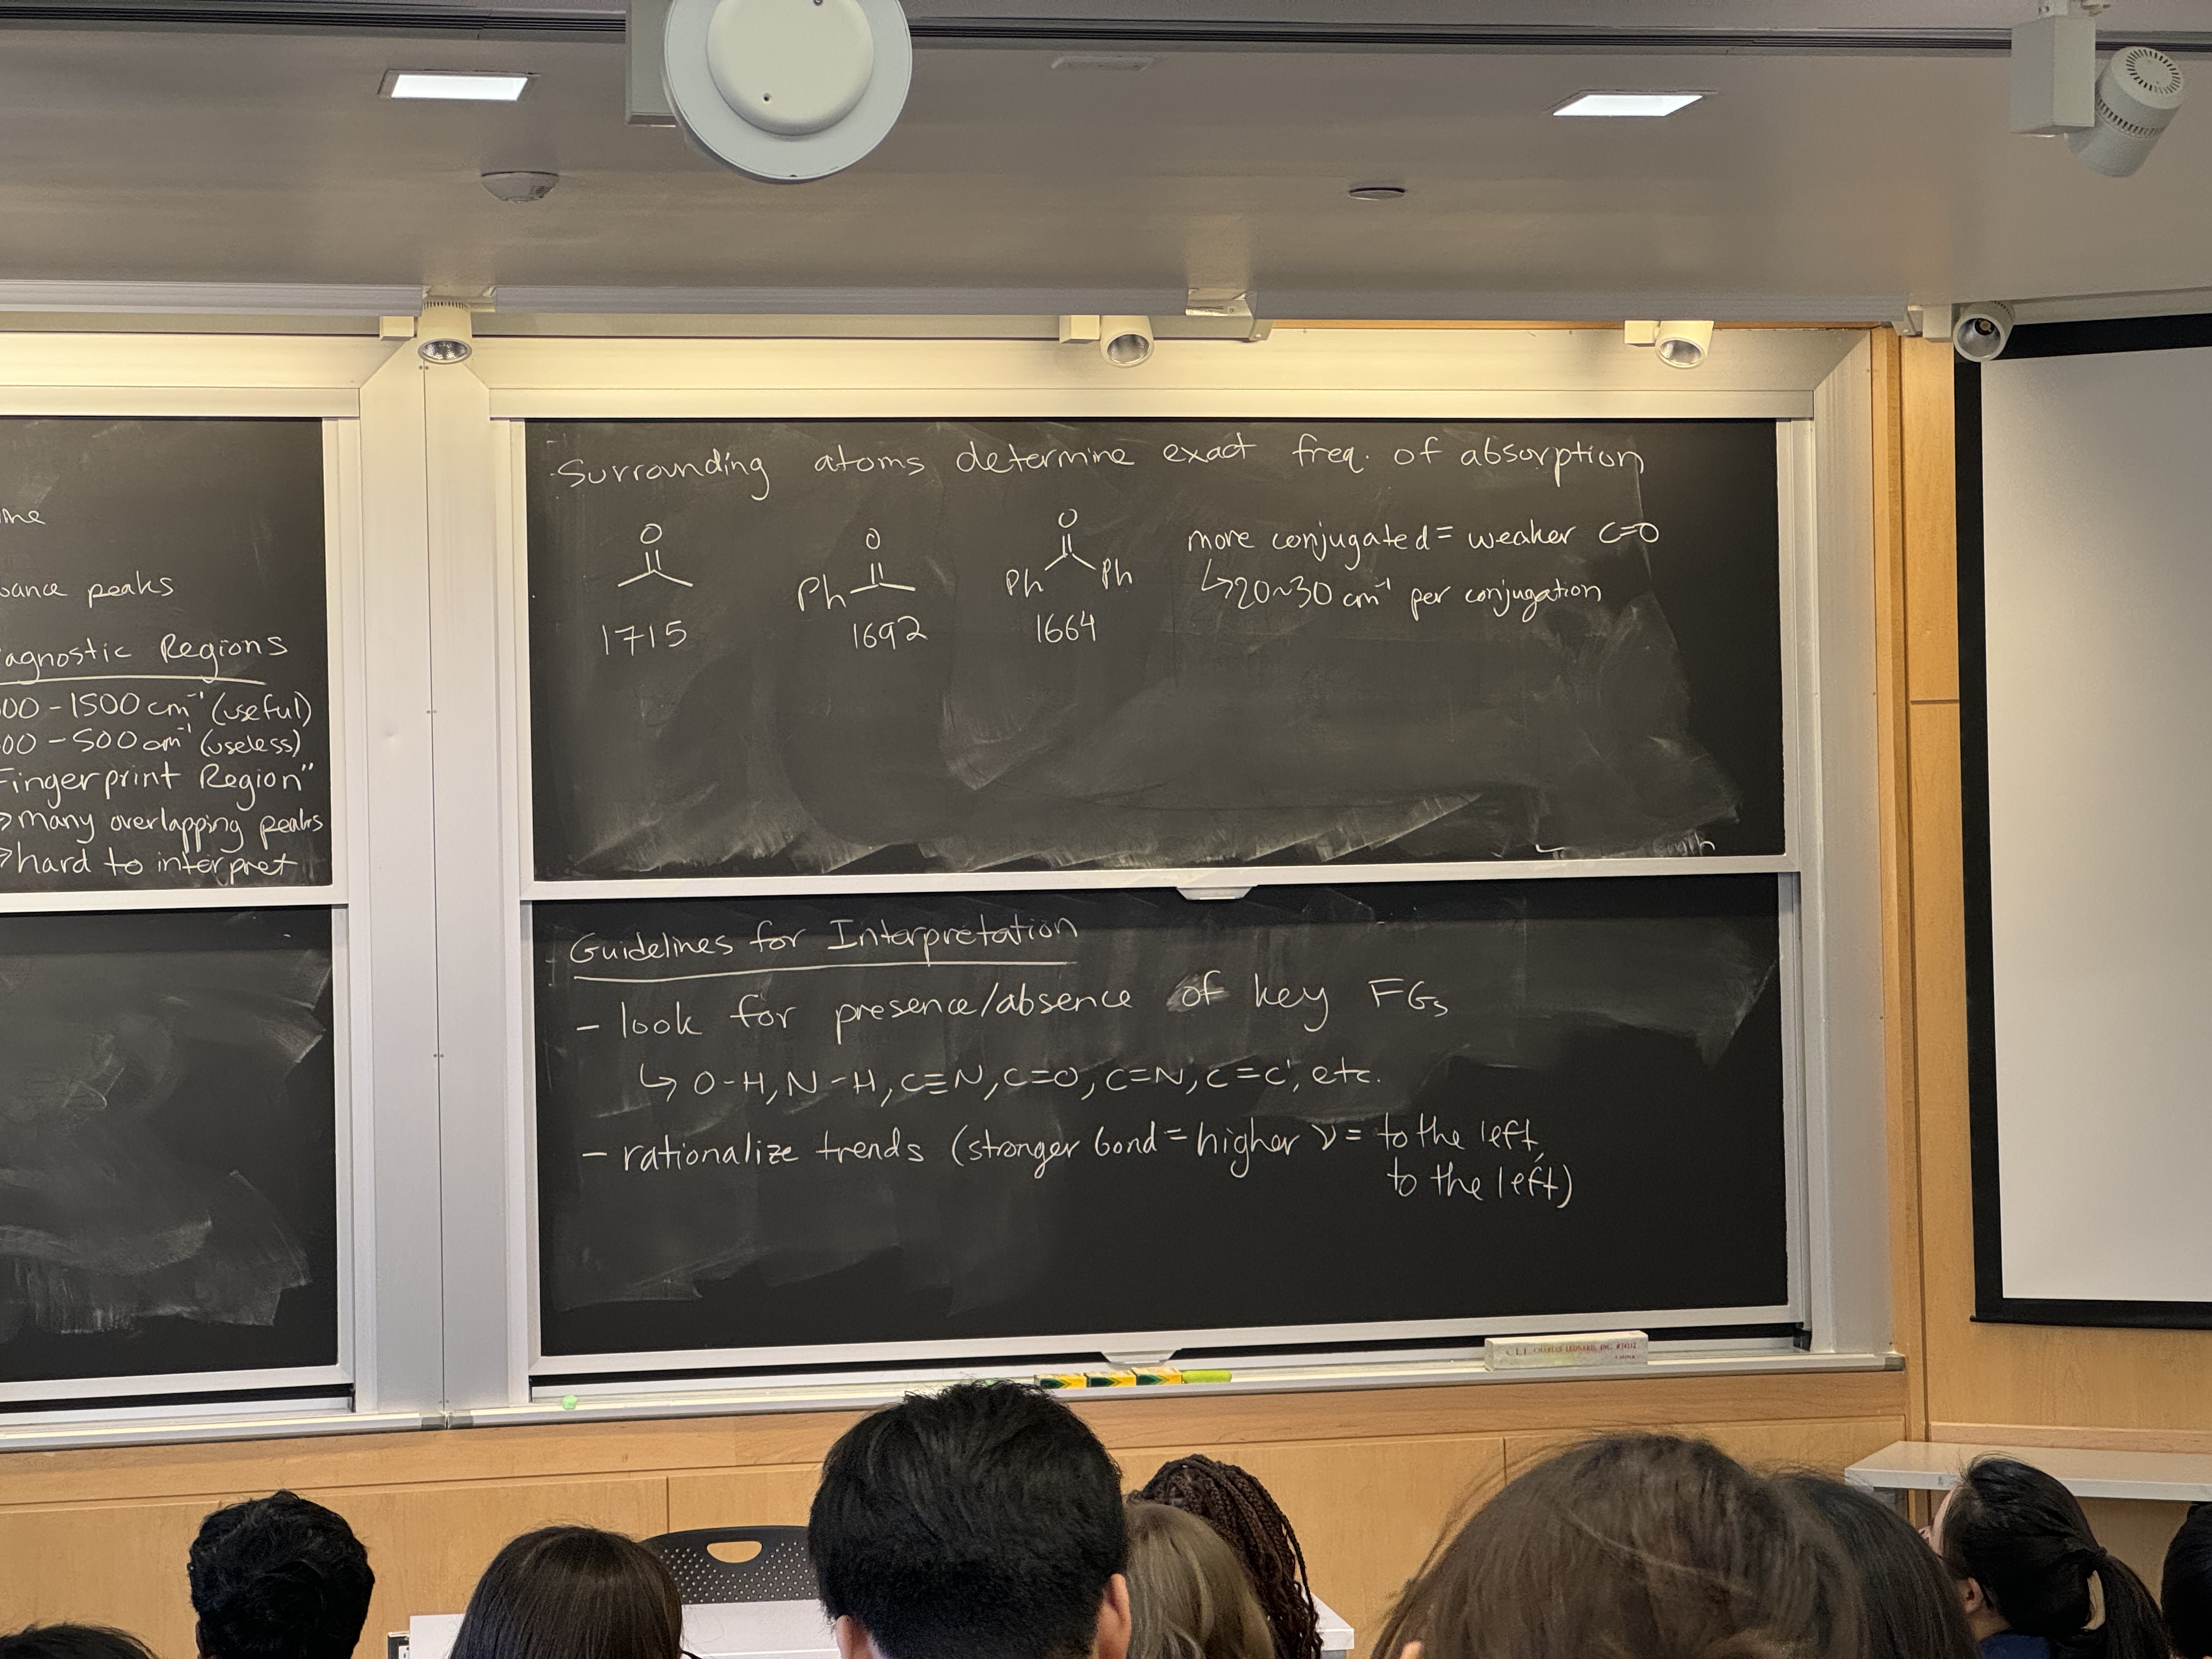 ance peaks
agnostic Regions
00 - 1500 cm⁻¹ (useful)
00 - 500 cm⁻¹ (useless)
Fingerprint Region"
→ many overlapping peaks
→ hard to interpret
- Surrounding atoms determine exact freq. of absorption
O O O
Ph Ph Ph
1715 1692 1664
more conjugated = weaker C=O
↳ 20~30 cm⁻¹ per conjugation
Guidelines for Interpretation
- look for presence/absence of key FGs
↳ O-H, N-H, C≡N, C=O, C=N, C=C, etc.
- rationalize trends (stronger bond = higher ν = to the left,
to the left)